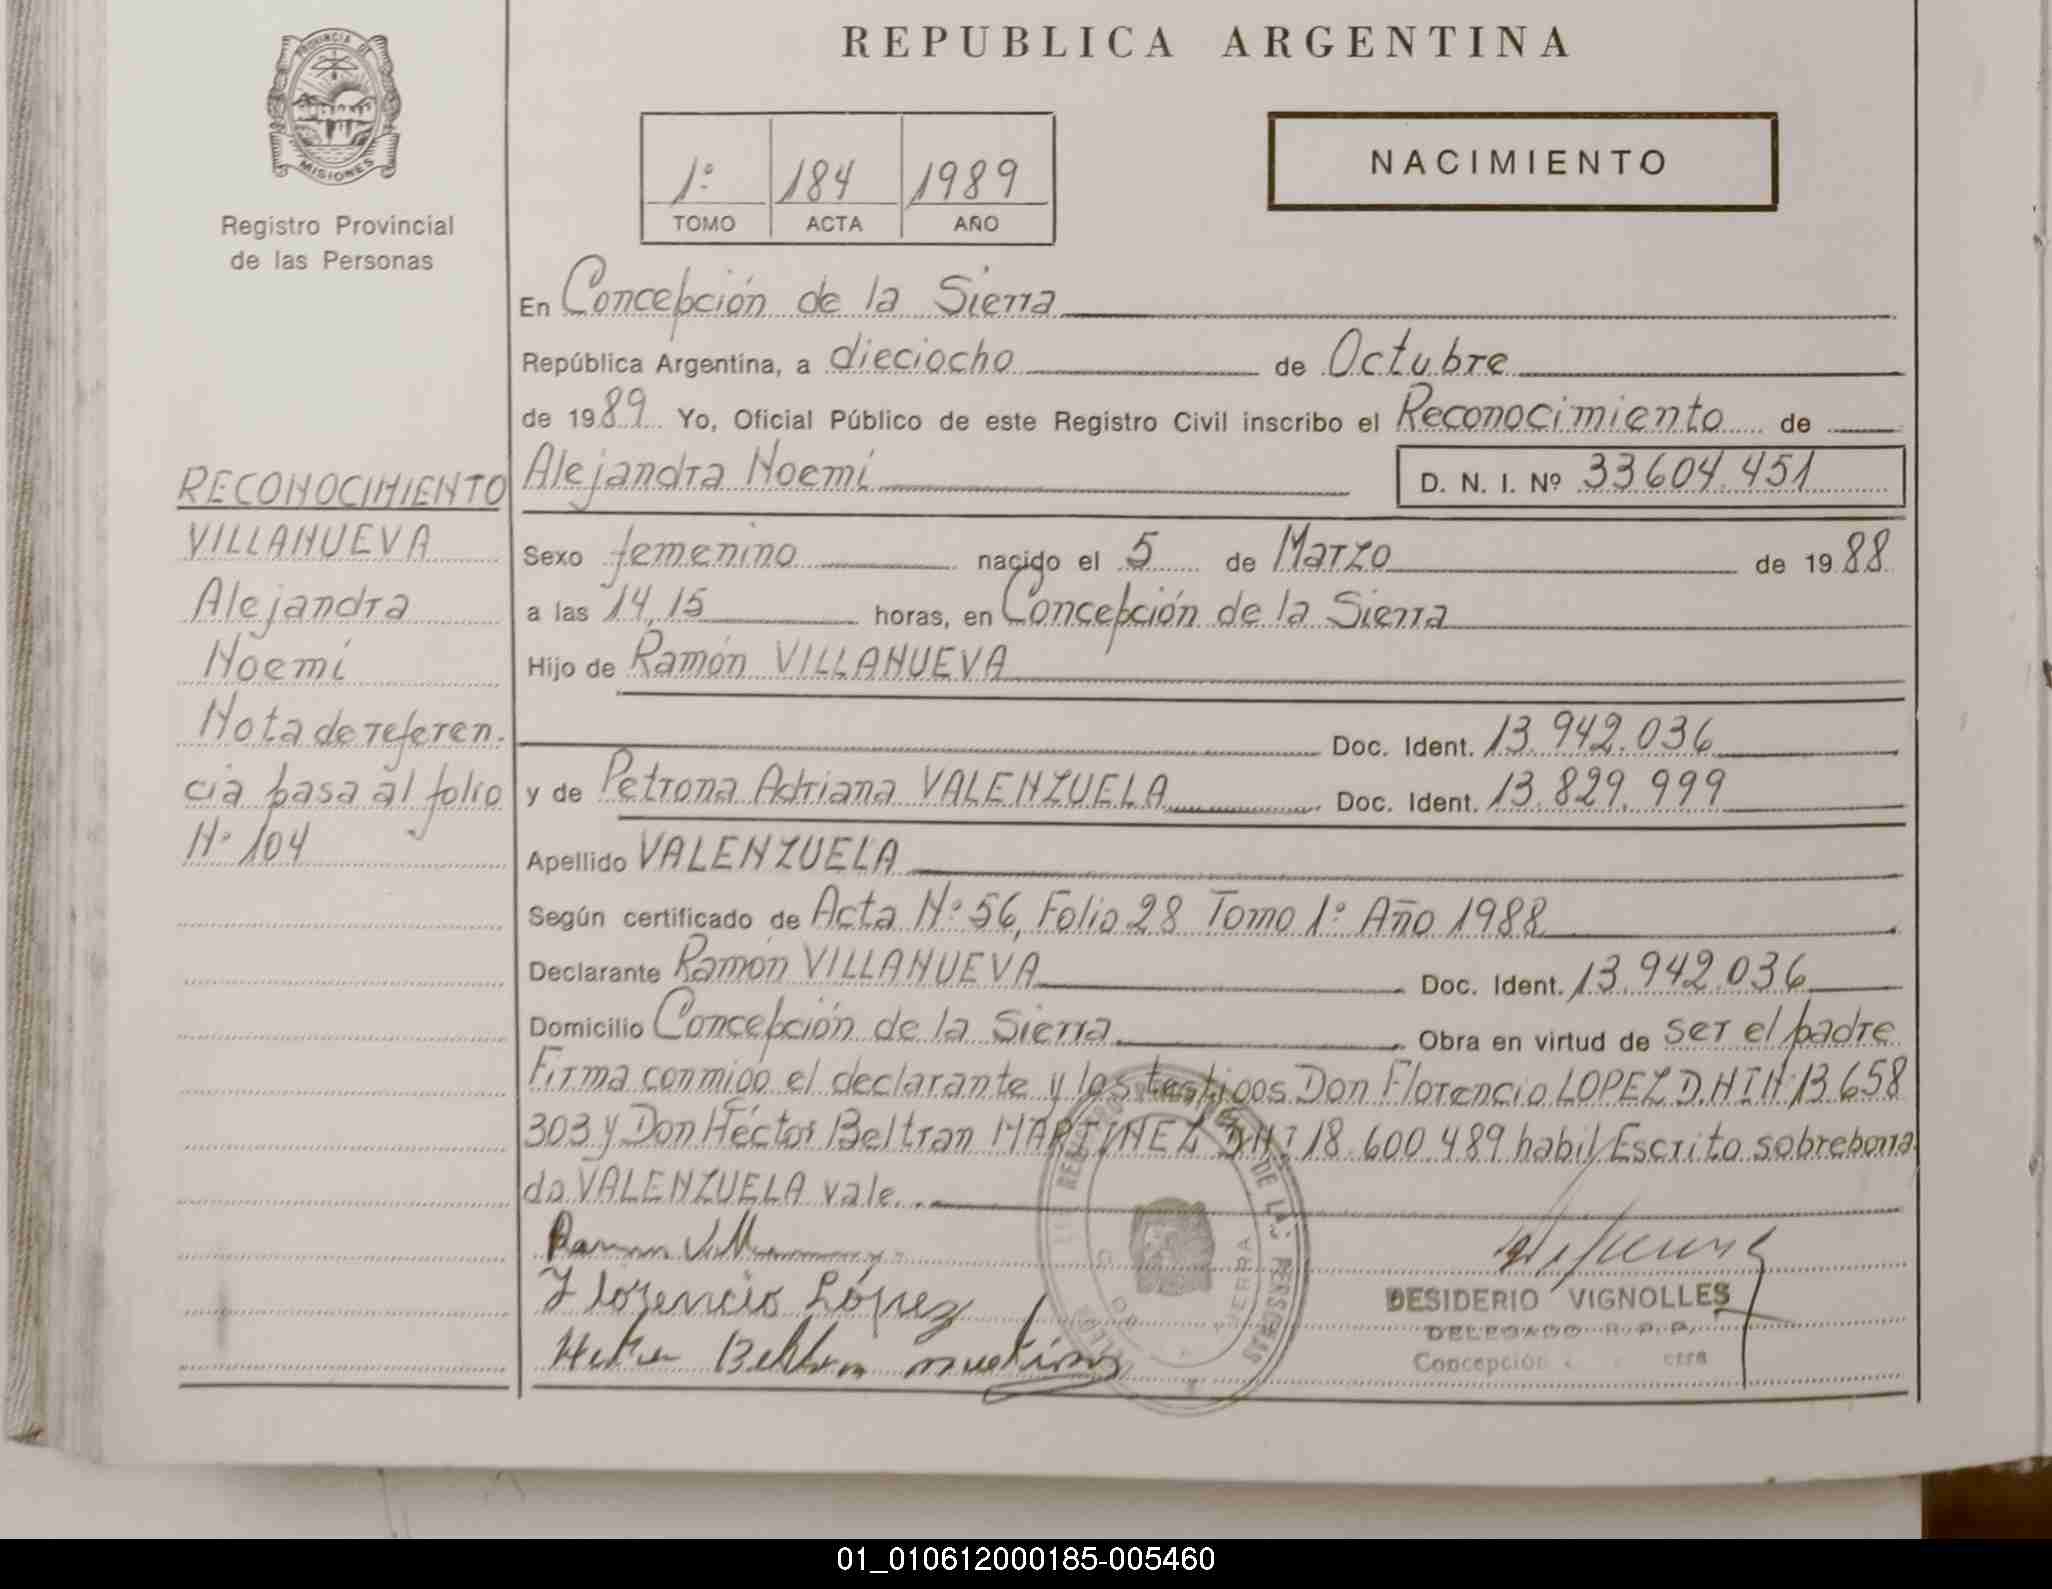 REPUBLICA ARGENTINA
PROVINCIA DE
MISIONES
Registro Provincial
de las Personas
1º 184 1989
TOMO ACTA AÑO
NACIMIENTO
En Concepción de la Sierra
República Argentina, a dieciocho de Octubre
de 1989 Yo, Oficial Público de este Registro Civil inscribo el Reconocimiento de
Alejandra Noemí D. N. I. Nº 33604.451
Sexo femenino nacido el 5 de Marzo de 1988
a las 14,15 horas, en Concepción de la Sierra
Hijo de Ramón VILLANUEVA
Doc. Ident. 13.942.036
y de Petrona Adriana VALENZUELA Doc. Ident. 13.829.999
Apellido VALENZUELA
Según certificado de Acta Nº 56, Folio 28 Tomo 1º Año 1988
Declarante Ramón VILLANUEVA Doc. Ident. 13.942.036
Domicilio Concepción de la Sierra Obra en virtud de ser el padre
Firma conmigo el declarante y los testigos Don Florencio LOPEZ D.N.I.N. 13.658
303 y Don Héctor Beltran MARTINEZ D.N.I 18.600.489 habil/Escrito sobreborra
do VALENZUELA vale.
RECONOCIMIENTO
VILLANUEVA
Alejandra
Noemí
Nota de referen.
cia pasa al folio
Nº 104
Ramon
Florencio López
Beltran
DE LAS PERSONAS
SIERRA
DESIDERIO VIGNOLLES
DELEGADO R.P.P.
Concepción
01_010612000185-005460